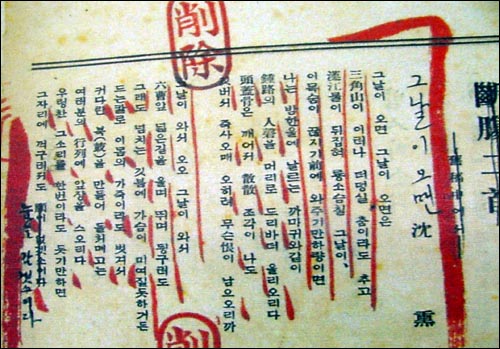 二首
그날이 오면 沈 熏
그날이 오면 그날이 오면은
三角山이 이러나 더덩실 춤이라도 추고
漢江물이 뒤집혀 룡소슴칠 그날이,
이목숨이 끊지기前에 와주기만하량이면
나는 밤한울에 날르는 까마귀와같이
鍾路의 人磬을 머리로 드리바더 울리오리다
頭蓋骨은 깨어저 散散 조각이 나도
깃버서 죽사오매 오히려 무슨恨이 남으오리까
그날이 와서 오오 그날이 와서
六曹앞 넓은길을 울며 뛰며 뒹구러도
그래도 넘치는 깃븜에 가슴이 미여질듯하거든
드는칼로 이몸의 가죽이라도 벗겨서
커다란 북(鼓)을 만들어 둘처메고는
여러분의 行列에 앞장을 스오리다
우렁찬 그소리를 한번이라도 듯기만하면
그자리에 꺽구러저도
눈을 감겟소이다
削除
削